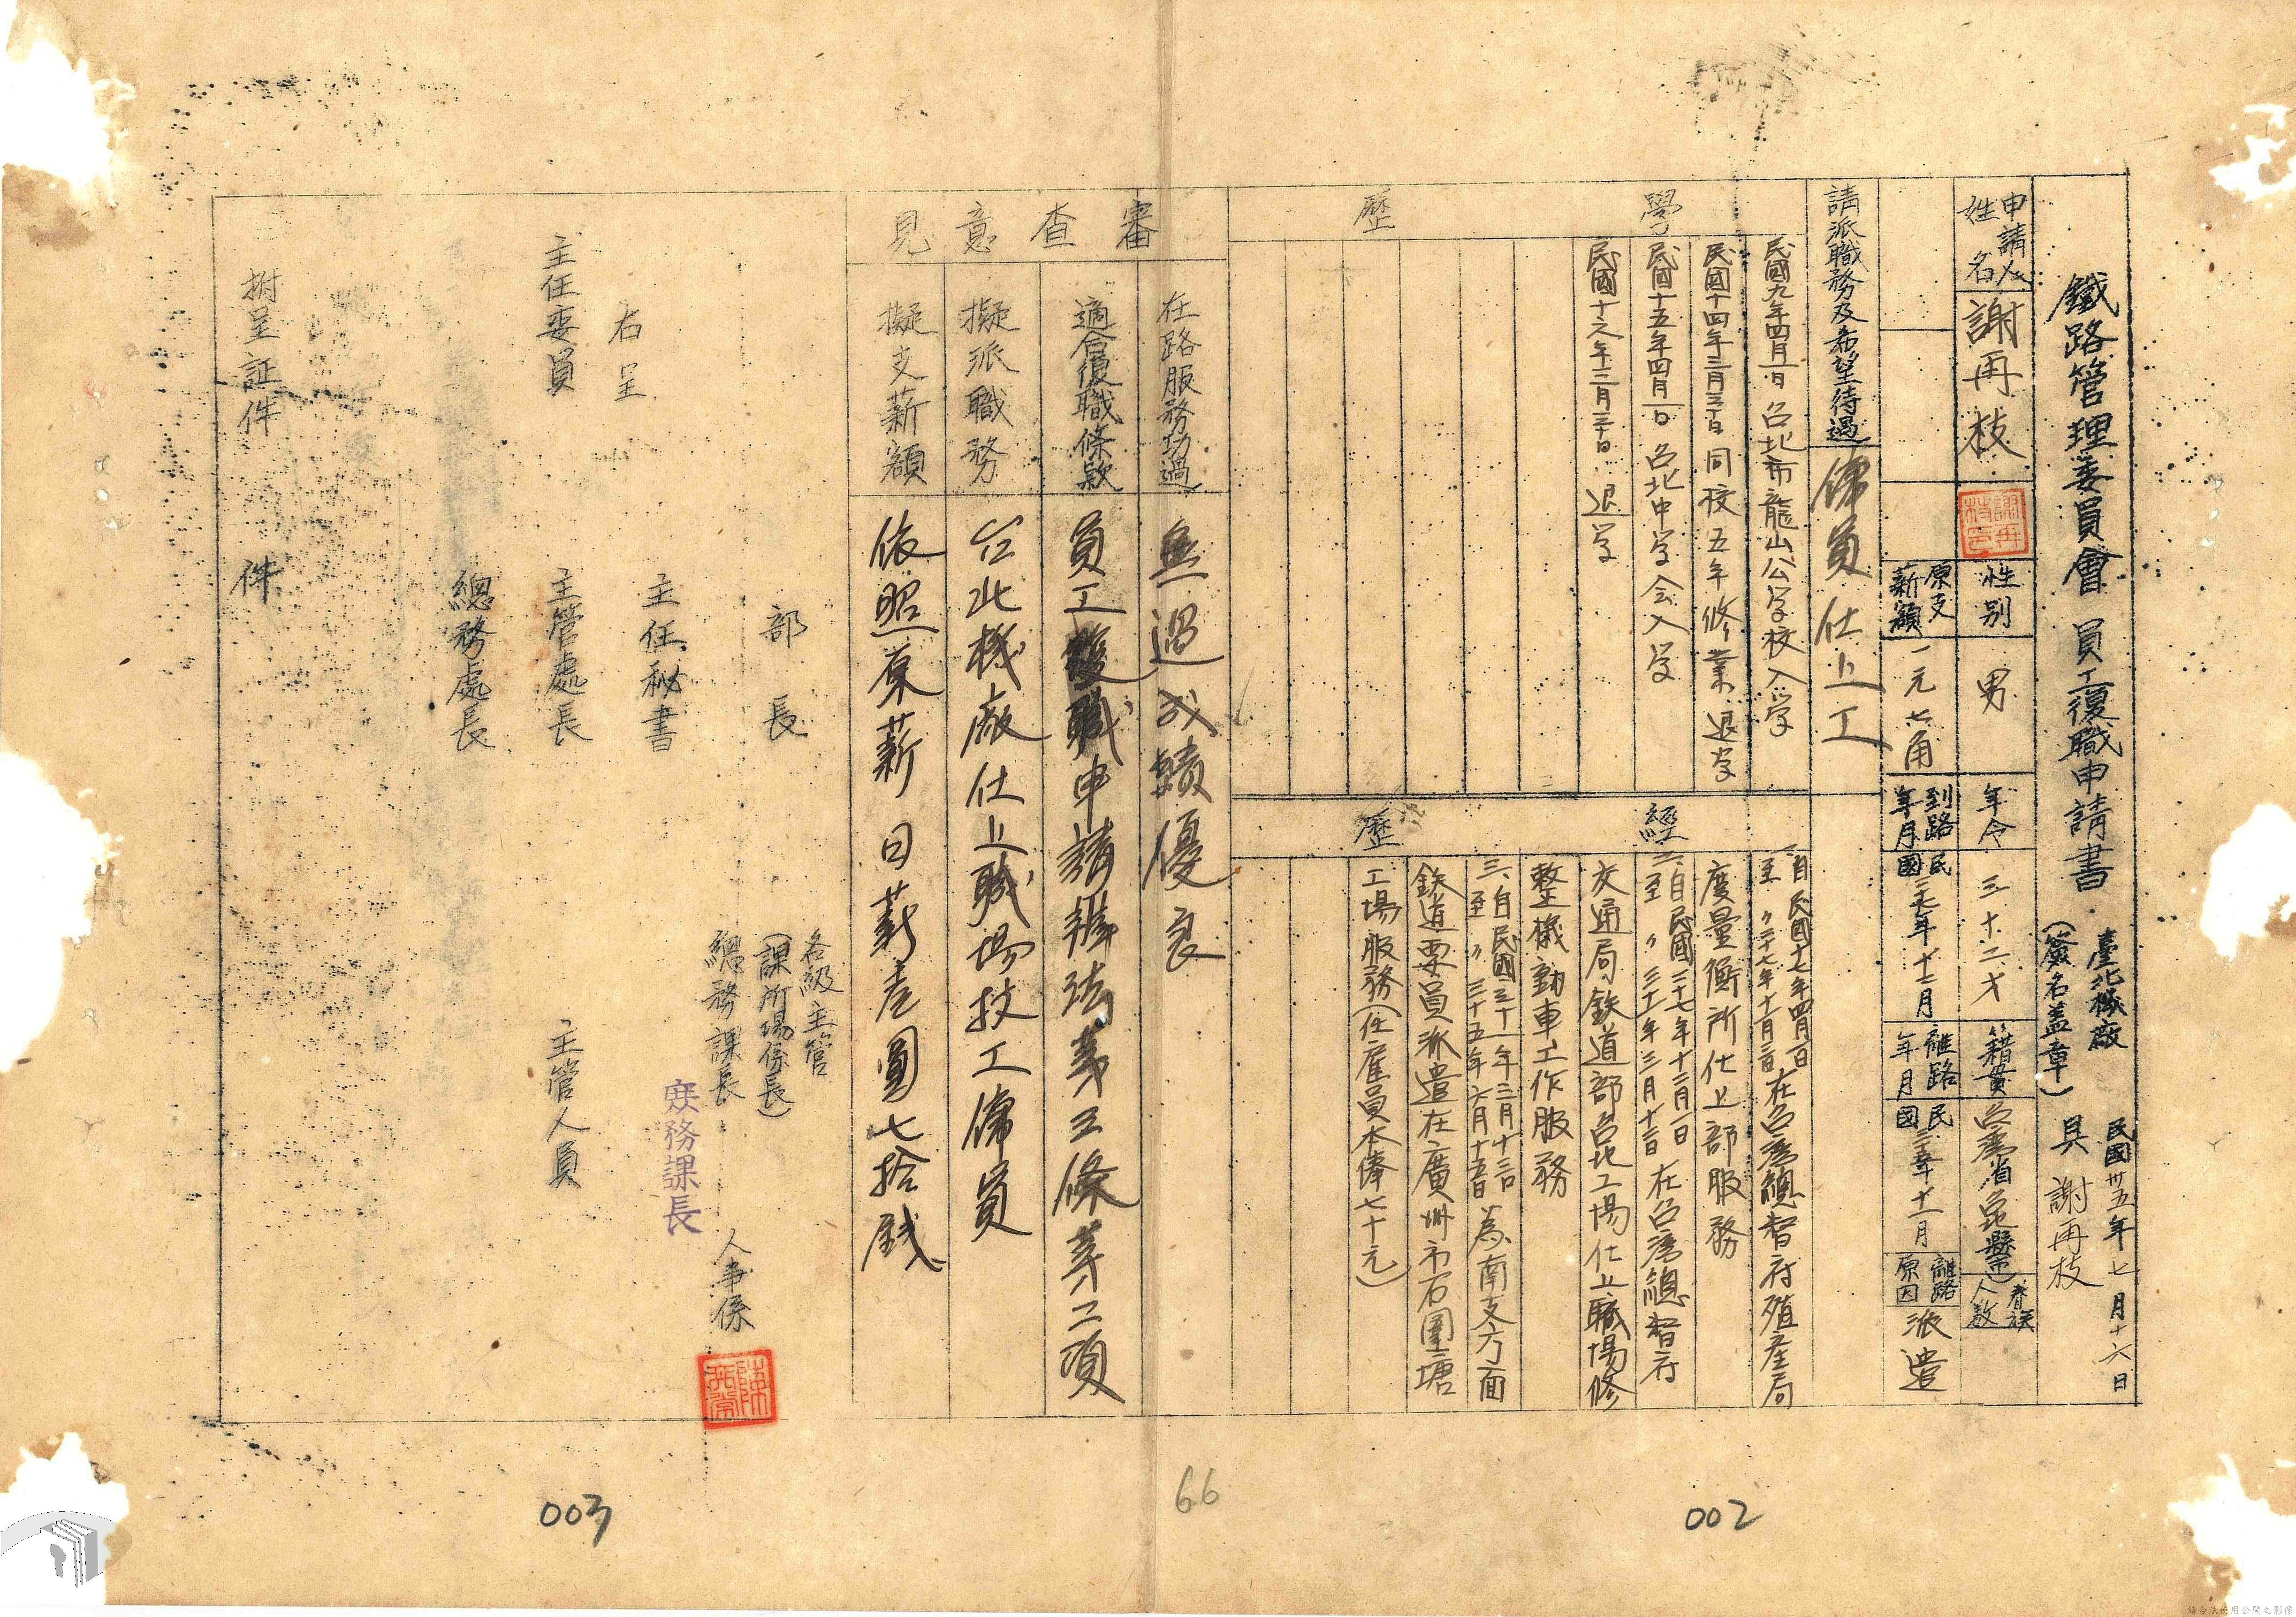 鐵路管理委員會 員工復職申請書
臺北機廠
(簽名蓋章)
民國卅五年七月十六日
具 謝再枝
申請人姓名
謝再枝
性別
男
年令
三十二才
籍貫
眷族人数
原支薪額
一元七角
到路年月
民國二七年十二月
離路年月
離路原因
派遣
請派職務及希望待遇
傭員 仕上工
學歷
民國九年四月一日 台北市龍山公学校入学
民國十四年三月三十日 同校五年修業退学
民國十五年四月一日 台北中学会入学
民國十六年三月三十日 退学
經歷
一、自民國十七年四月一日
至〃二十七年十一月三日
在台湾總督府殖産局
度量衡所仕上部服務
二、自民國二十七年十二月一日
至〃三十一年三月十二日
在台湾總督府
交通局鉄道部台北工場仕上職場修
整機動車工作服務
三、自民國三十一年三月十三日
至〃三十五年六月十五日
為南支方面
鉄道要員派遣在廣州市石圍塘
工場服務(任雇員本俸七十元)
審查意見
在路服務功過
無過成績優良
適合復職條款
員工復職申請辦法第五條第二項
擬派職務
台北機廠仕上職場技工傭員
擬支薪額
依照原薪日薪壱圓七拾錢
各級主管
(課所場係長)
部長
總務課長
人事係
庶務課長
主任秘書
右呈
主任委員
主管處長
主管人員
總務處長
附呈証件 件
003
66
002